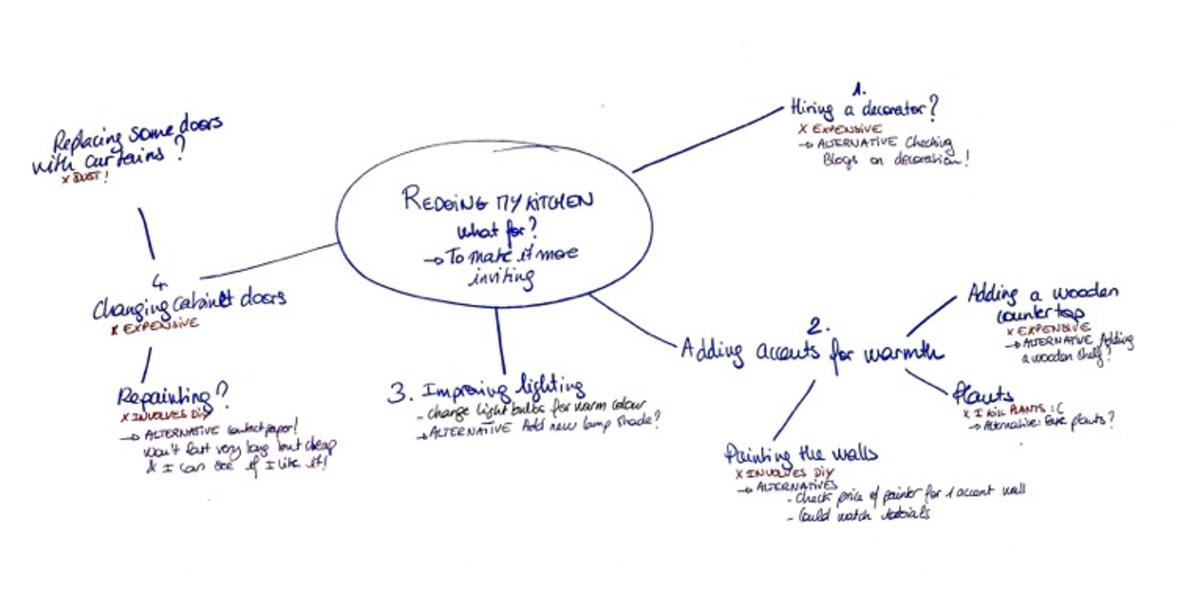 REDOING MY KITCHEN
What for?
→ To make it more
inviting
1.
Hiring a decorator?
X EXPENSIVE
→ ALTERNATIVE Checking
Blogs on decoration!
2.
Adding accents for warmth
Adding a wooden
countertop
X EXPENSIVE
→ ALTERNATIVE Adding
a wooden shelf?
Plants
X I KILL PLANTS :(
→ Alternative: Fake plants?
Painting the walls
X INVOLVES DIY
→ ALTERNATIVES
- Check price of painter for 1 accent wall
- Could watch tutorials
3. Improving lighting
- change light bulbs for warm colour
→ ALTERNATIVE Add new lamp shade?
4.
Changing cabinet doors
X EXPENSIVE
Replacing some doors
with curtains?
X DUST!
Repainting?
X INVOLVES DIY
→ ALTERNATIVE Contact paper!
Won't last very long but cheap
& I can see if I like it!